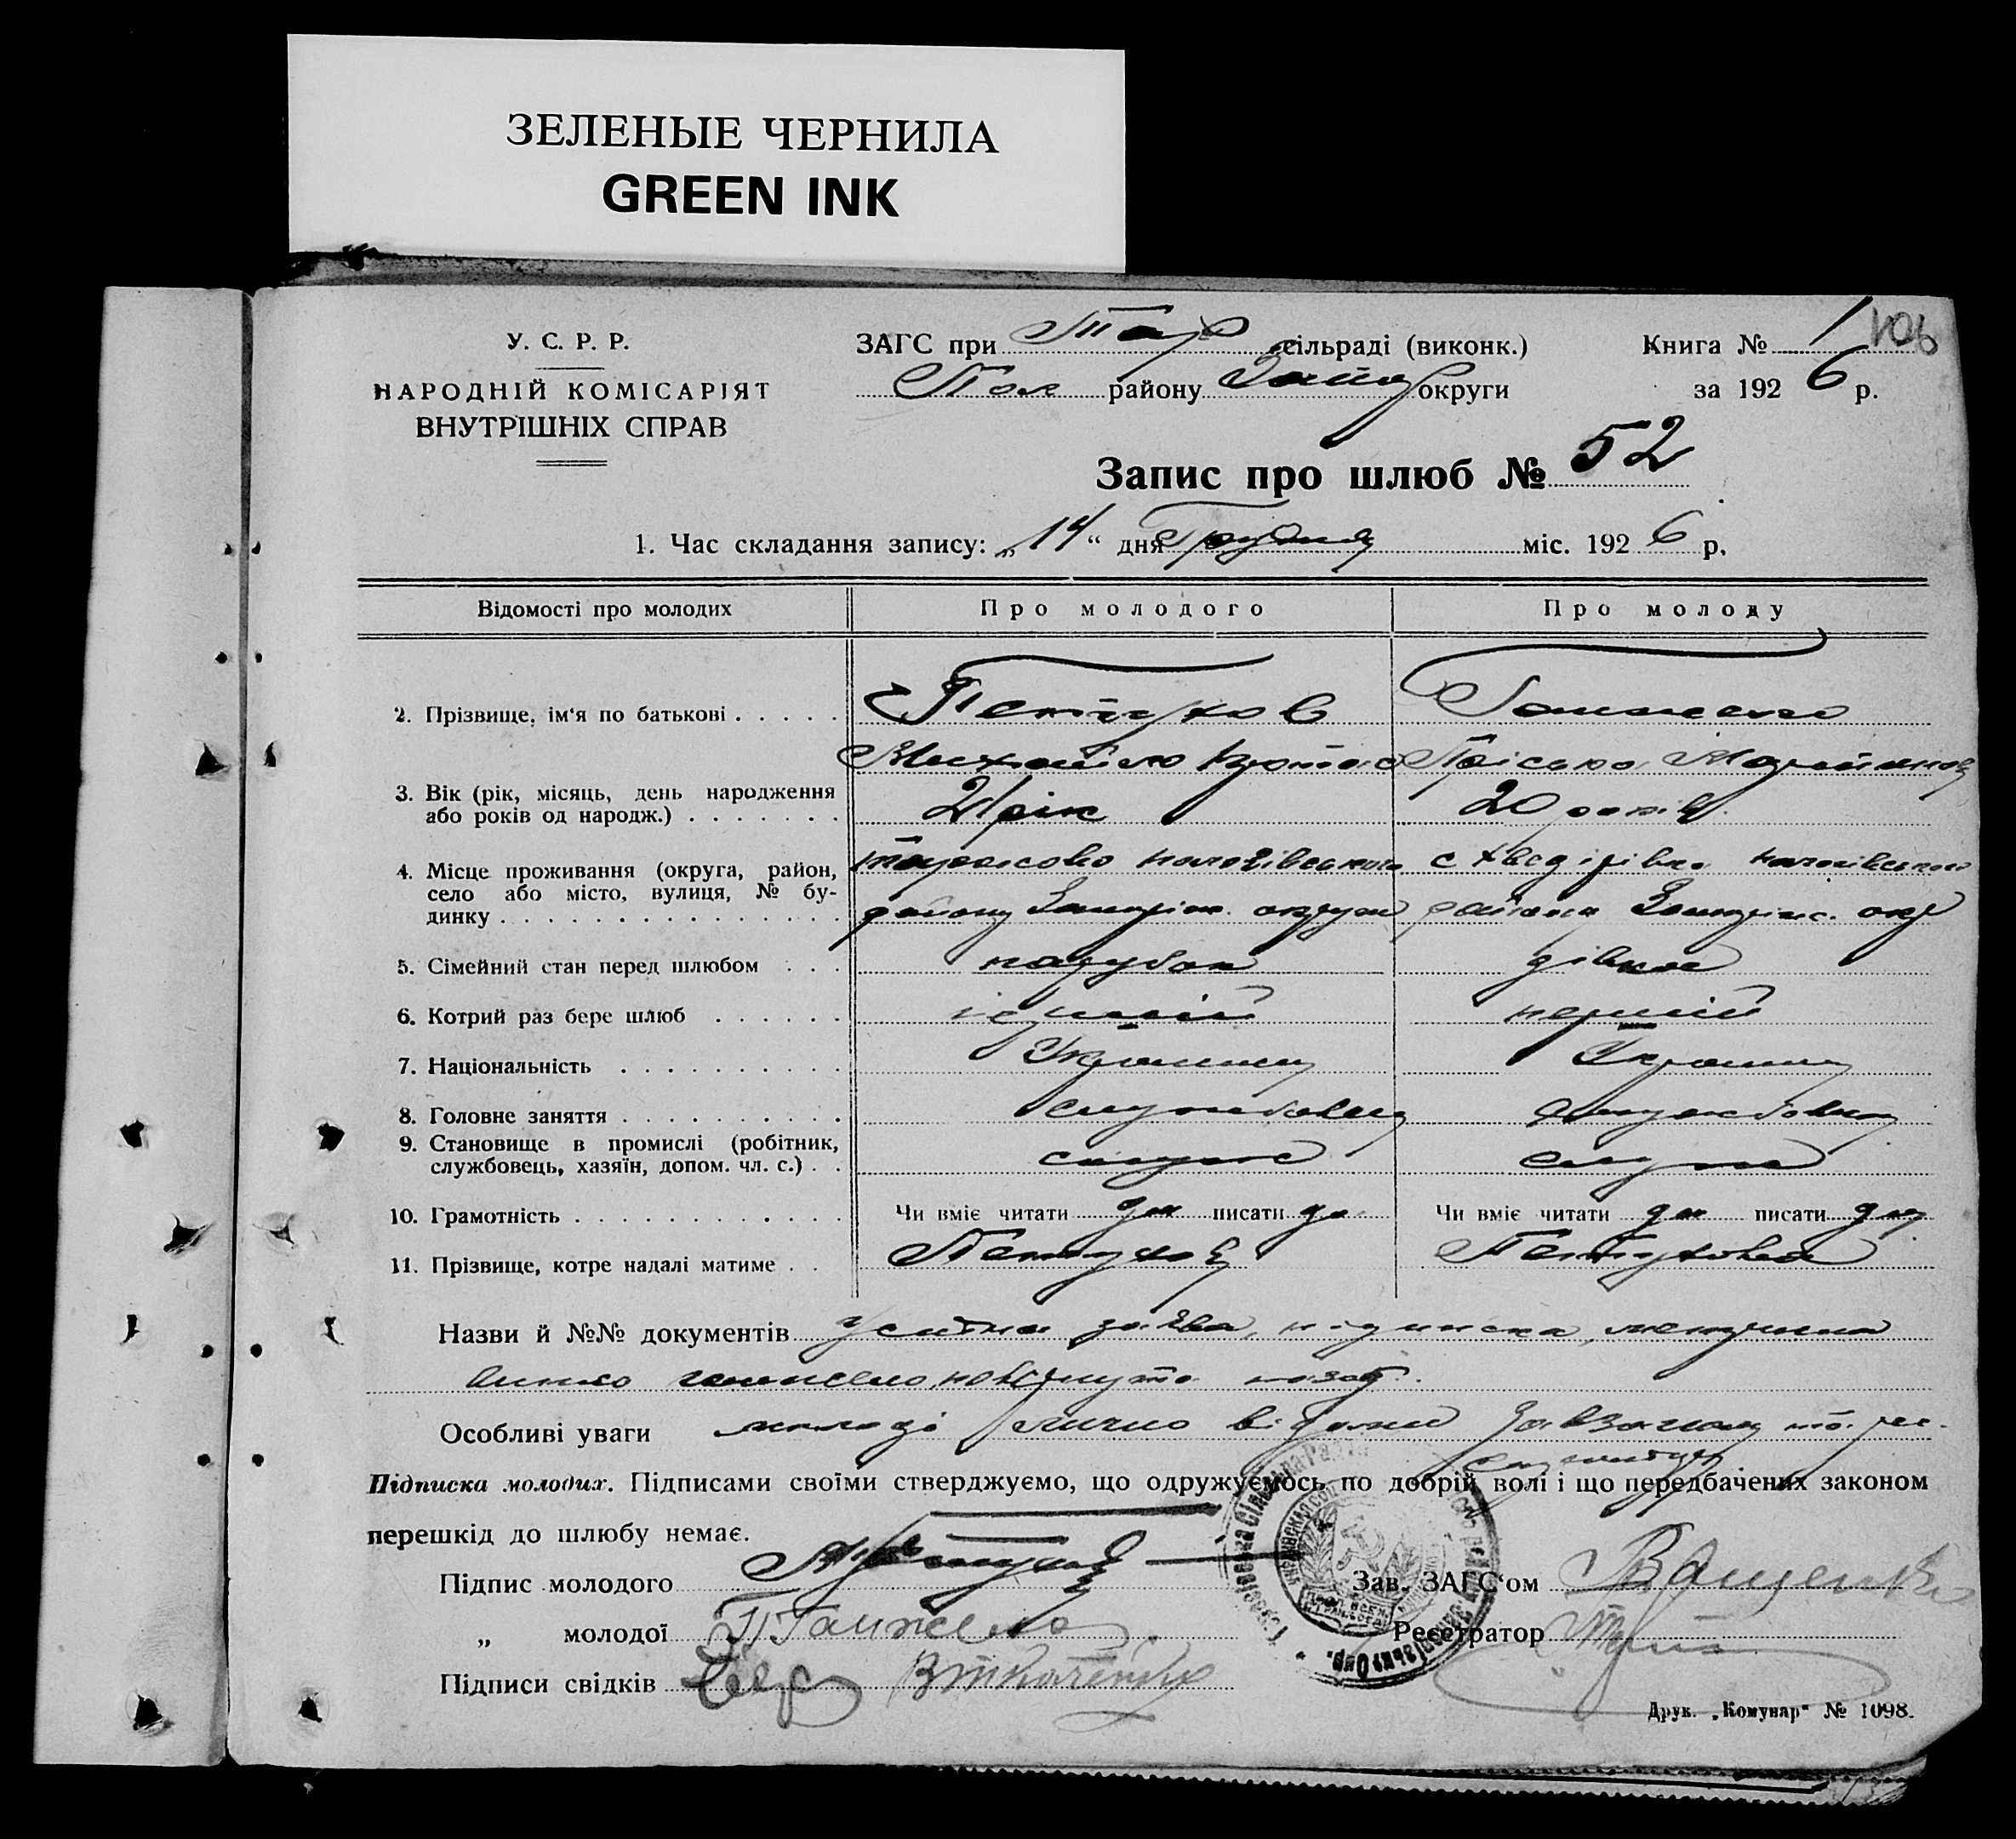 ЗЕЛЕНЫЕ ЧЕРНИЛА
GREEN INK
У. С. Р. Р.
НАРОДНІЙ КОМІСАРІЯТ
ВНУТРІШНІХ СПРАВ
ЗАГС при Тар сільраді (виконк.)
Пол району Запор округи
Книга № 1
за 1926 р.
Запис про шлюб № 52
1. Час складання запису: „14“ дня Грудня міс. 1926 р.
Відомості про молодих Про молодого Про молоду
2. Прізвище, ім'я по батькові . . . . . Петухов Ганжела
Михайло Прісько
3. Вік (рік, місяць, день народження або років од народж.) . . . . . . . 21 рік 20 років
4. Місце проживання (округа, район, село або місто, вулиця, № будинку . . . . . . . . . . . . . . . Тарасовка пологівського с пологівського
району Запоріж. округи района Запоріж. окр
5. Сімейний стан перед шлюбом . . . парубок дівка
6. Котрий раз бере шлюб . . . . . . перший перший
7. Національність . . . . . . . . . . Українец Україн
8. Головне заняття . . . . . . . . . . службовец службовец
9. Становище в промислі (робітник, службовець, хазяїн, допом. чл. с.) . . служ служ
10. Грамотність . . . . . . . . . . . . Чи вміє читати да писати да Чи вміє читати да писати да
11. Прізвище, котре надалі матиме . . Петухов Петухова
Назви й №№ документів Усна заява, підписка, метрична
повернуто назад.
Особливі уваги молоді лично відомі
Підписка молодих. Підписами своїми стверджуємо, що одружуємось по добрій волі і що передбачених законом
перешкід до шлюбу немає.
Підпис молодого
„ молодої П Ганжела
Підписи свідків В Ткаченко
Зав. ЗАГС'ом Ващенко
Реєстратор
Друк. „Комунар“ № 1098.